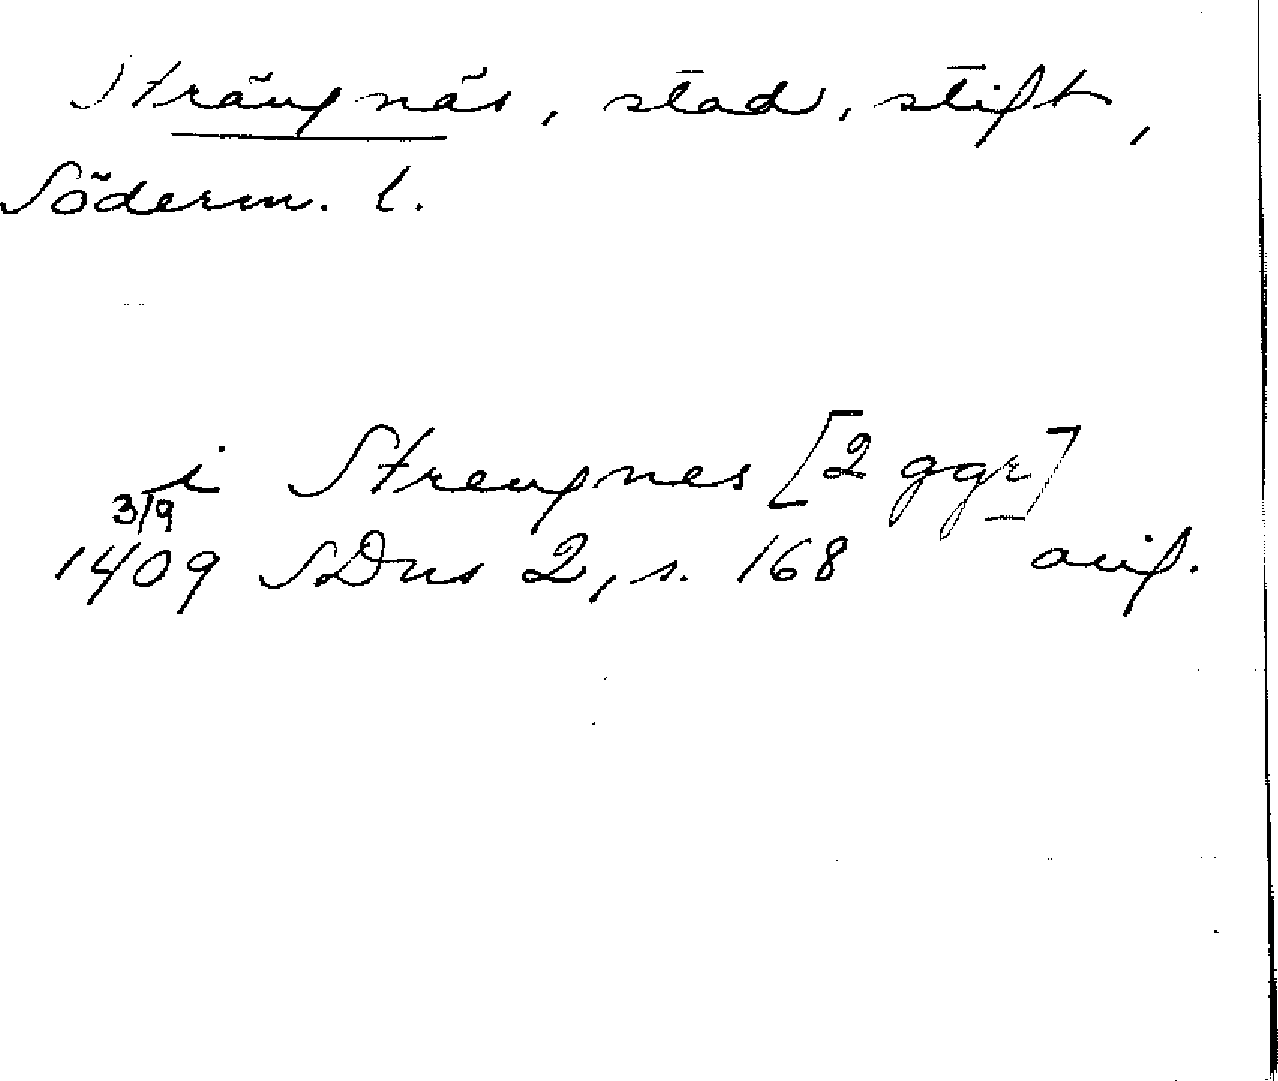 Strängnäs, stad, stift,
Söderm. l.
i Strengnes [2 ggr]
3/9
1409 SDns 2, s. 168 orig.